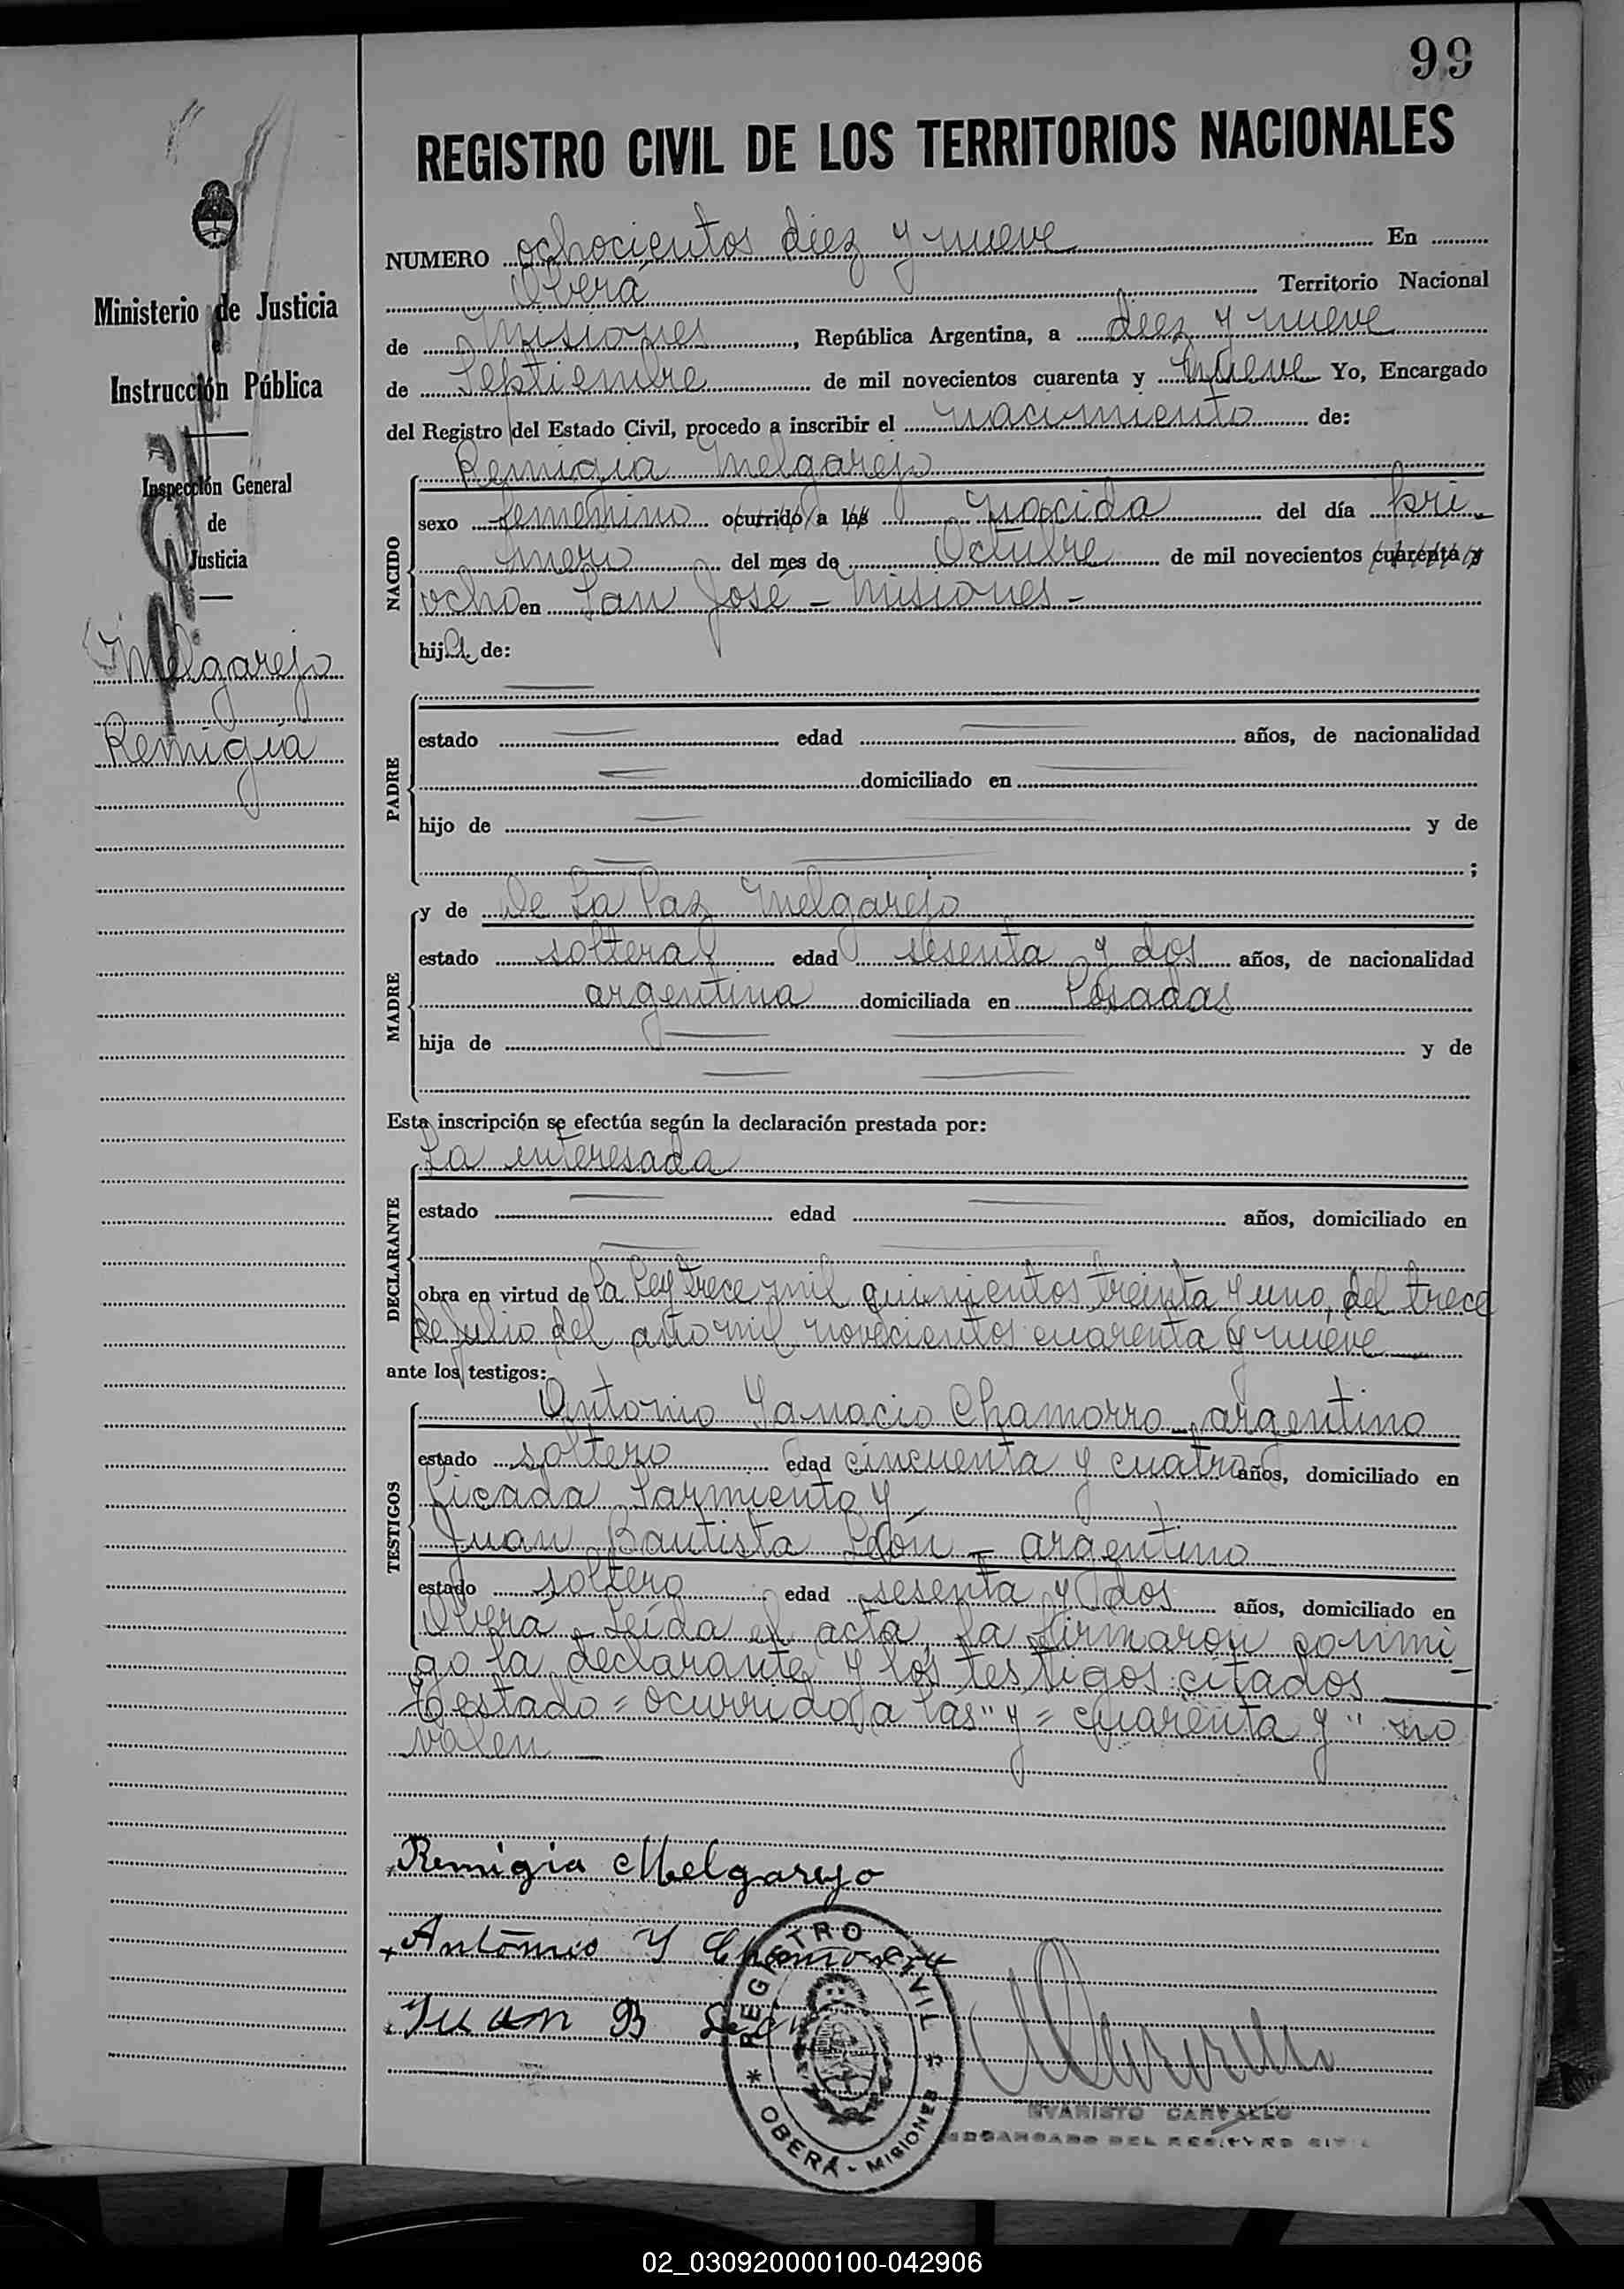 99
REGISTRO CIVIL DE LOS TERRITORIOS NACIONALES
Ministerio de Justicia
e
Instrucción Pública
Inspección General
de
Justicia
Melgarejo
Remigia
NUMERO ochocientos diez y nueve En
Oberá Territorio Nacional
de Misiones, República Argentina, a diez y nueve
de Septiembre de mil novecientos cuarenta y nueve Yo, Encargado
del Registro del Estado Civil, procedo a inscribir el nacimiento de:
Remigia Melgarejo
NACIDO
sexo femenino ocurrido a las nacida del día pri-
mero del mes de Octubre de mil novecientos cuarenta y
ocho en San José - Misiones -
hija de:
PADRE
estado edad años, de nacionalidad
domiciliado en
hijo de y de
;
MADRE
y de De La Paz Melgarejo
estado soltera edad sesenta y dos años, de nacionalidad
argentina domiciliada en Posadas
hija de y de
Esta inscripción se efectúa según la declaración prestada por:
La interesada
DECLARANTE
estado edad años, domiciliado en
obra en virtud de la Ley trece mil quinientos treinta y uno, del trece
de julio del año mil novecientos cuarenta y nueve
ante los testigos:
TESTIGOS
Antonio Ygnacio Chamorro - argentino
estado soltero edad cincuenta y cuatro años, domiciliado en
Picada Sarmiento y
Juan Bautista León - argentino
estado soltero edad sesenta y dos años, domiciliado en
Oberá - Leída el acta, la firmaron conmi-
go la declarante y los testigos citados
Testado = ocurrido a las" y = cuarenta y" no
valen
Remigia Melgarejo
Antonio Y Chamorro
Juan B León
REGISTRO CIVIL
* OBERÁ - MISIONES *
EVARISTO CARVALLO
ENCARGADO DEL REGISTRO CIVIL
02_030920000100-042906